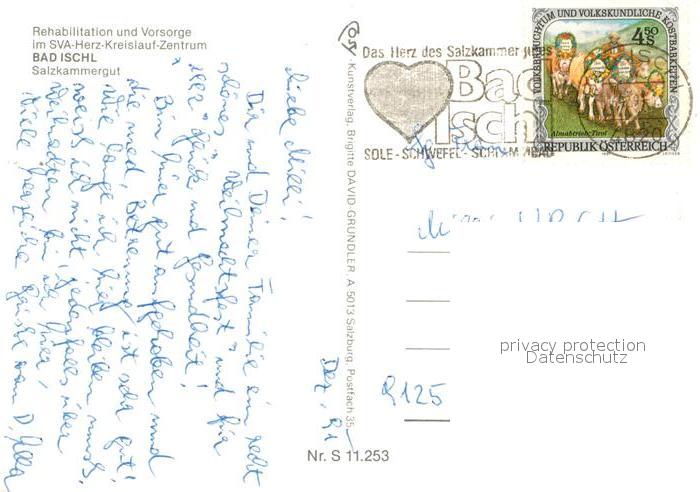 Rehabilitation und Vorsorge
im SVA-Herz-Kreislauf-Zentrum
BAD ISCHL
Salzkammergut
Liebe Milli!
Dir und Deiner Familie ein recht
schönes Weihnachtsfest und für
Gesundheit!
Bin hier gut aufgehoben und
die med. Betreuung ist sehr gut!
Wie lange ich hier bleiben muss,
weiss ich nicht, jedenfalls über
Weihnachten bin ich hier!
Viele herzliche Grüsse von D.
Dez. 91
Kunstverlag Brigitte DAVID-GRÜNDLER A 5013 Salzburg, Postfach 35
Nr. S 11.253
Das Herz des Salzkammergutes
Bad
Ischl
SOLE - SCHWEFEL - SCHLAMMBAD
4820
VOLKSBRAUCHTUM UND VOLKSKUNDLICHE KOSTBARKEITEN
4.50
S
Almabtrieb, Tirol
REPUBLIK ÖSTERREICH
privacy protection
Datenschutz
R125